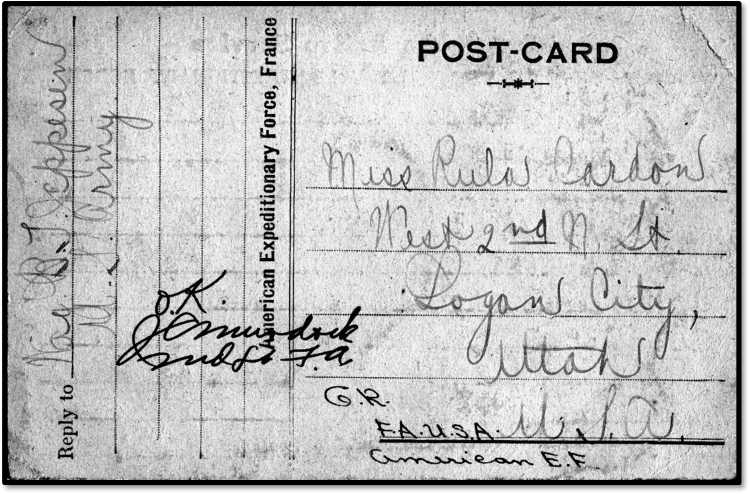 POST-CARD
Miss Rula Cardon
West 2nd N. St.
Logan City,
Utah
U.S.A.
G.R.
F.A.U.S.A.
American E.F.
American Expeditionary Force, France
Reply to Wag B T Jeppesen
U.S. Army
O.K.
Murdock
2nd Lt F.A